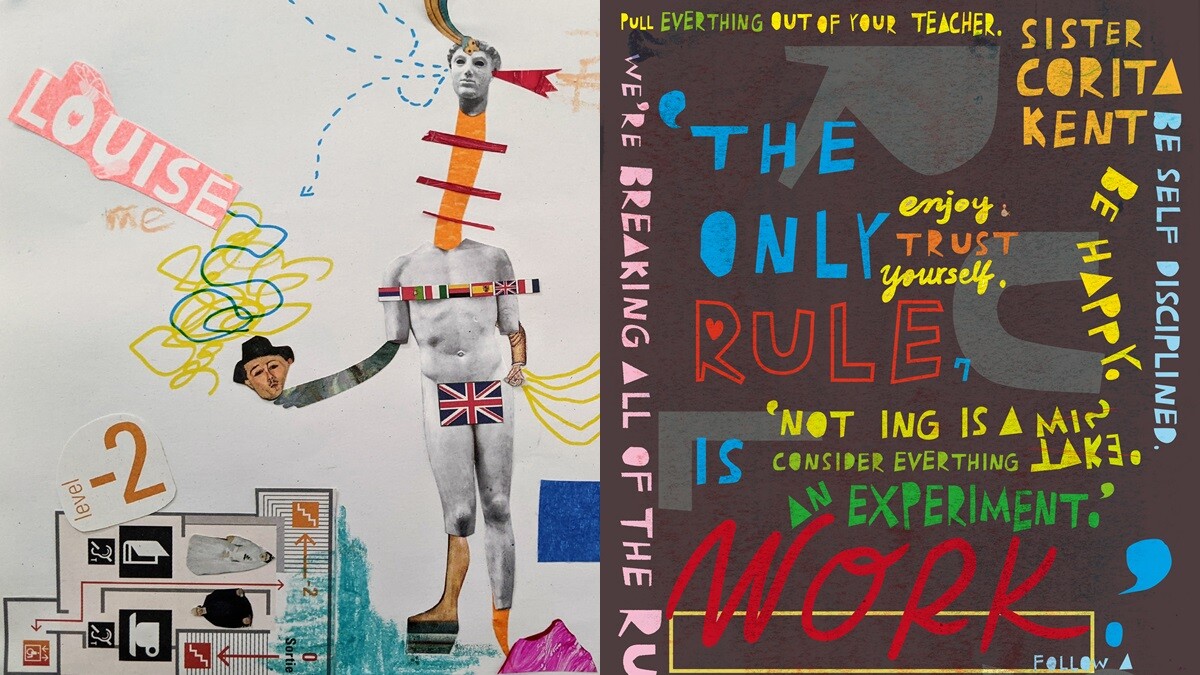 LOUISE
me
level
-2
-2
0
Sortie
PULL EVERTHING OUT OF YOUR TEACHER.
SISTER
CORITA
KENT
WE'RE BREAKING ALL OF THE RU
BE SELF DISCIPLINED.
BE HAPPY.
'THE
ONLY
enjoy.
TRUST
yourself.
RULE
7
IS
'NOT ING IS A MIS
TAKE.
CONSIDER EVERTHING
AN EXPERIMENT.'
WORK
,
FOLLOW A
R
U
L